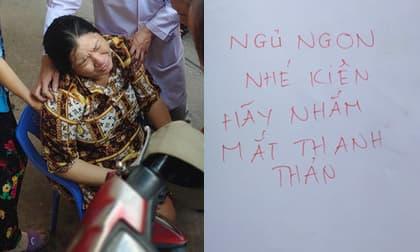 NGỦ NGON
NHÉ KIÊN
HÃY NHẮM
MẮT THANH
THẢN